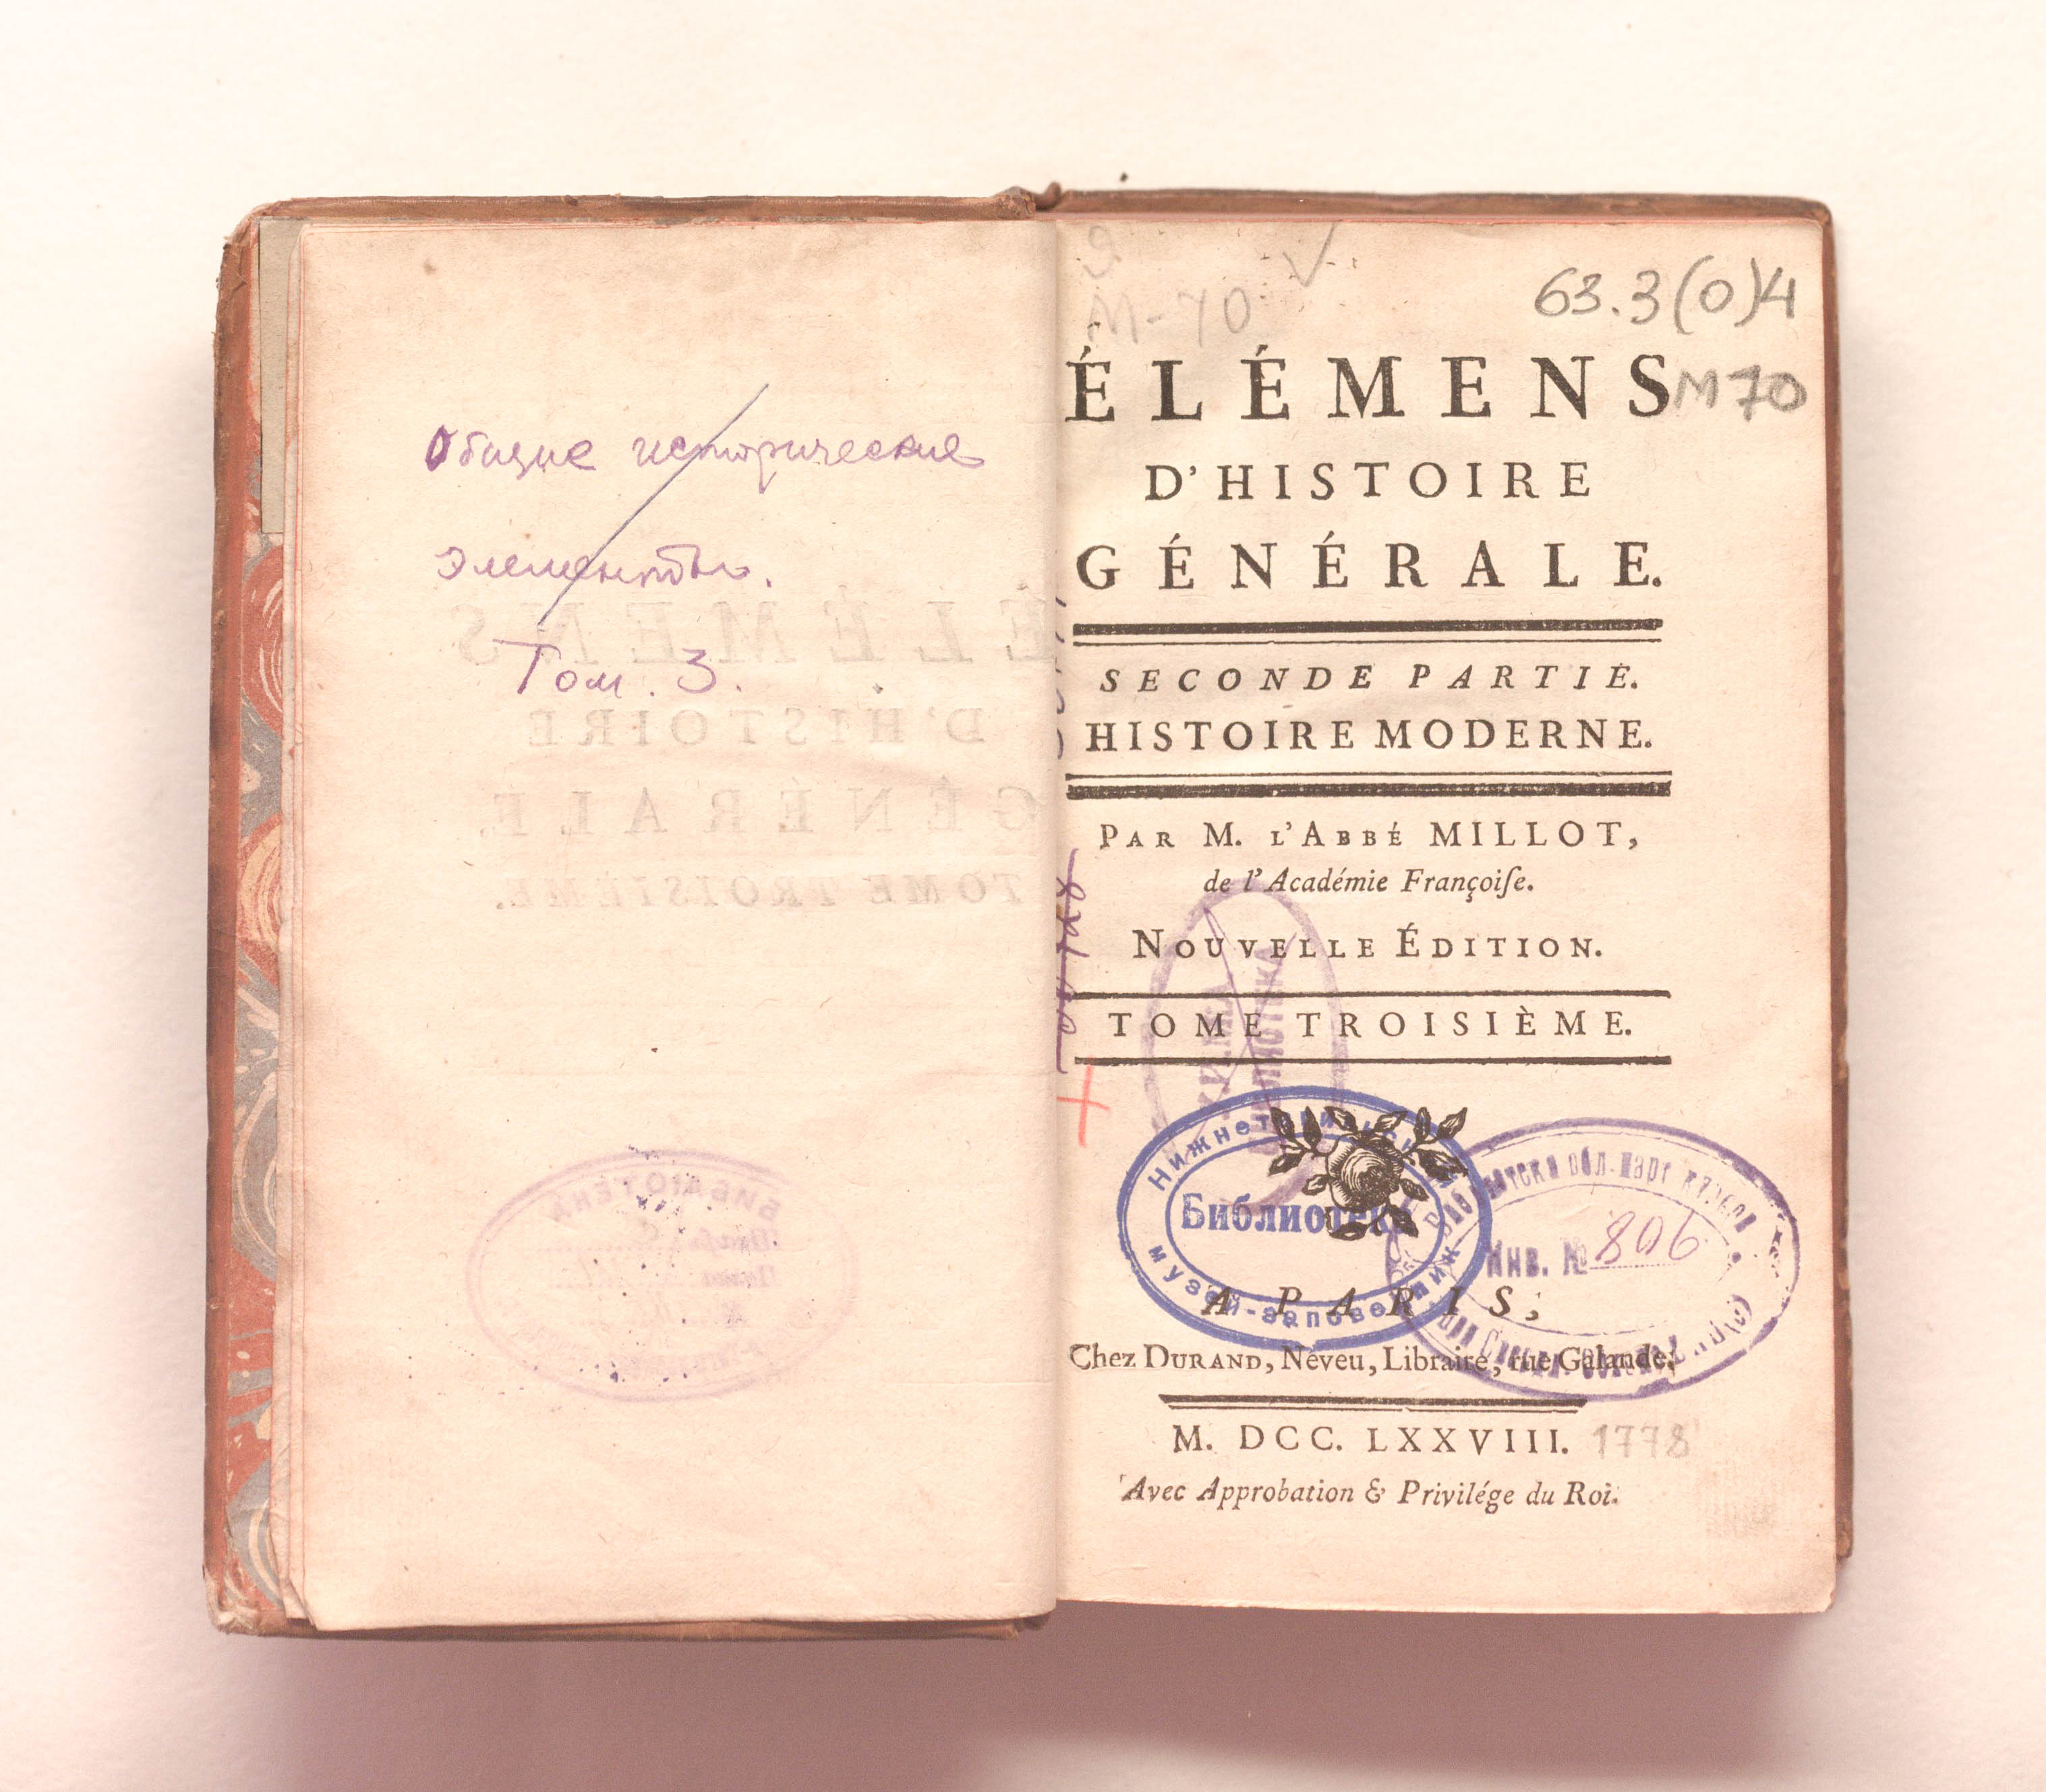 Общие исторические
элементы.
Том. 3.
63.3(0)4
М-70
ÉLÉMENS
М70
D'HISTOIRE
GÉNÉRALE.
SECONDE PARTIE.
HISTOIRE MODERNE.
PAR M. L'ABBÉ MILLOT,
de l'Académie Françoiſe.
NOUVELLE ÉDITION.
TOME TROISIÈME.
Библиотека
музей-заповедник
Инв. № 806
A PARIS,
Chez DURAND, Neveu, Libraire, rue Galande.
M. DCC. LXXVIII. 1778
Avec Approbation & Privilége du Roi.